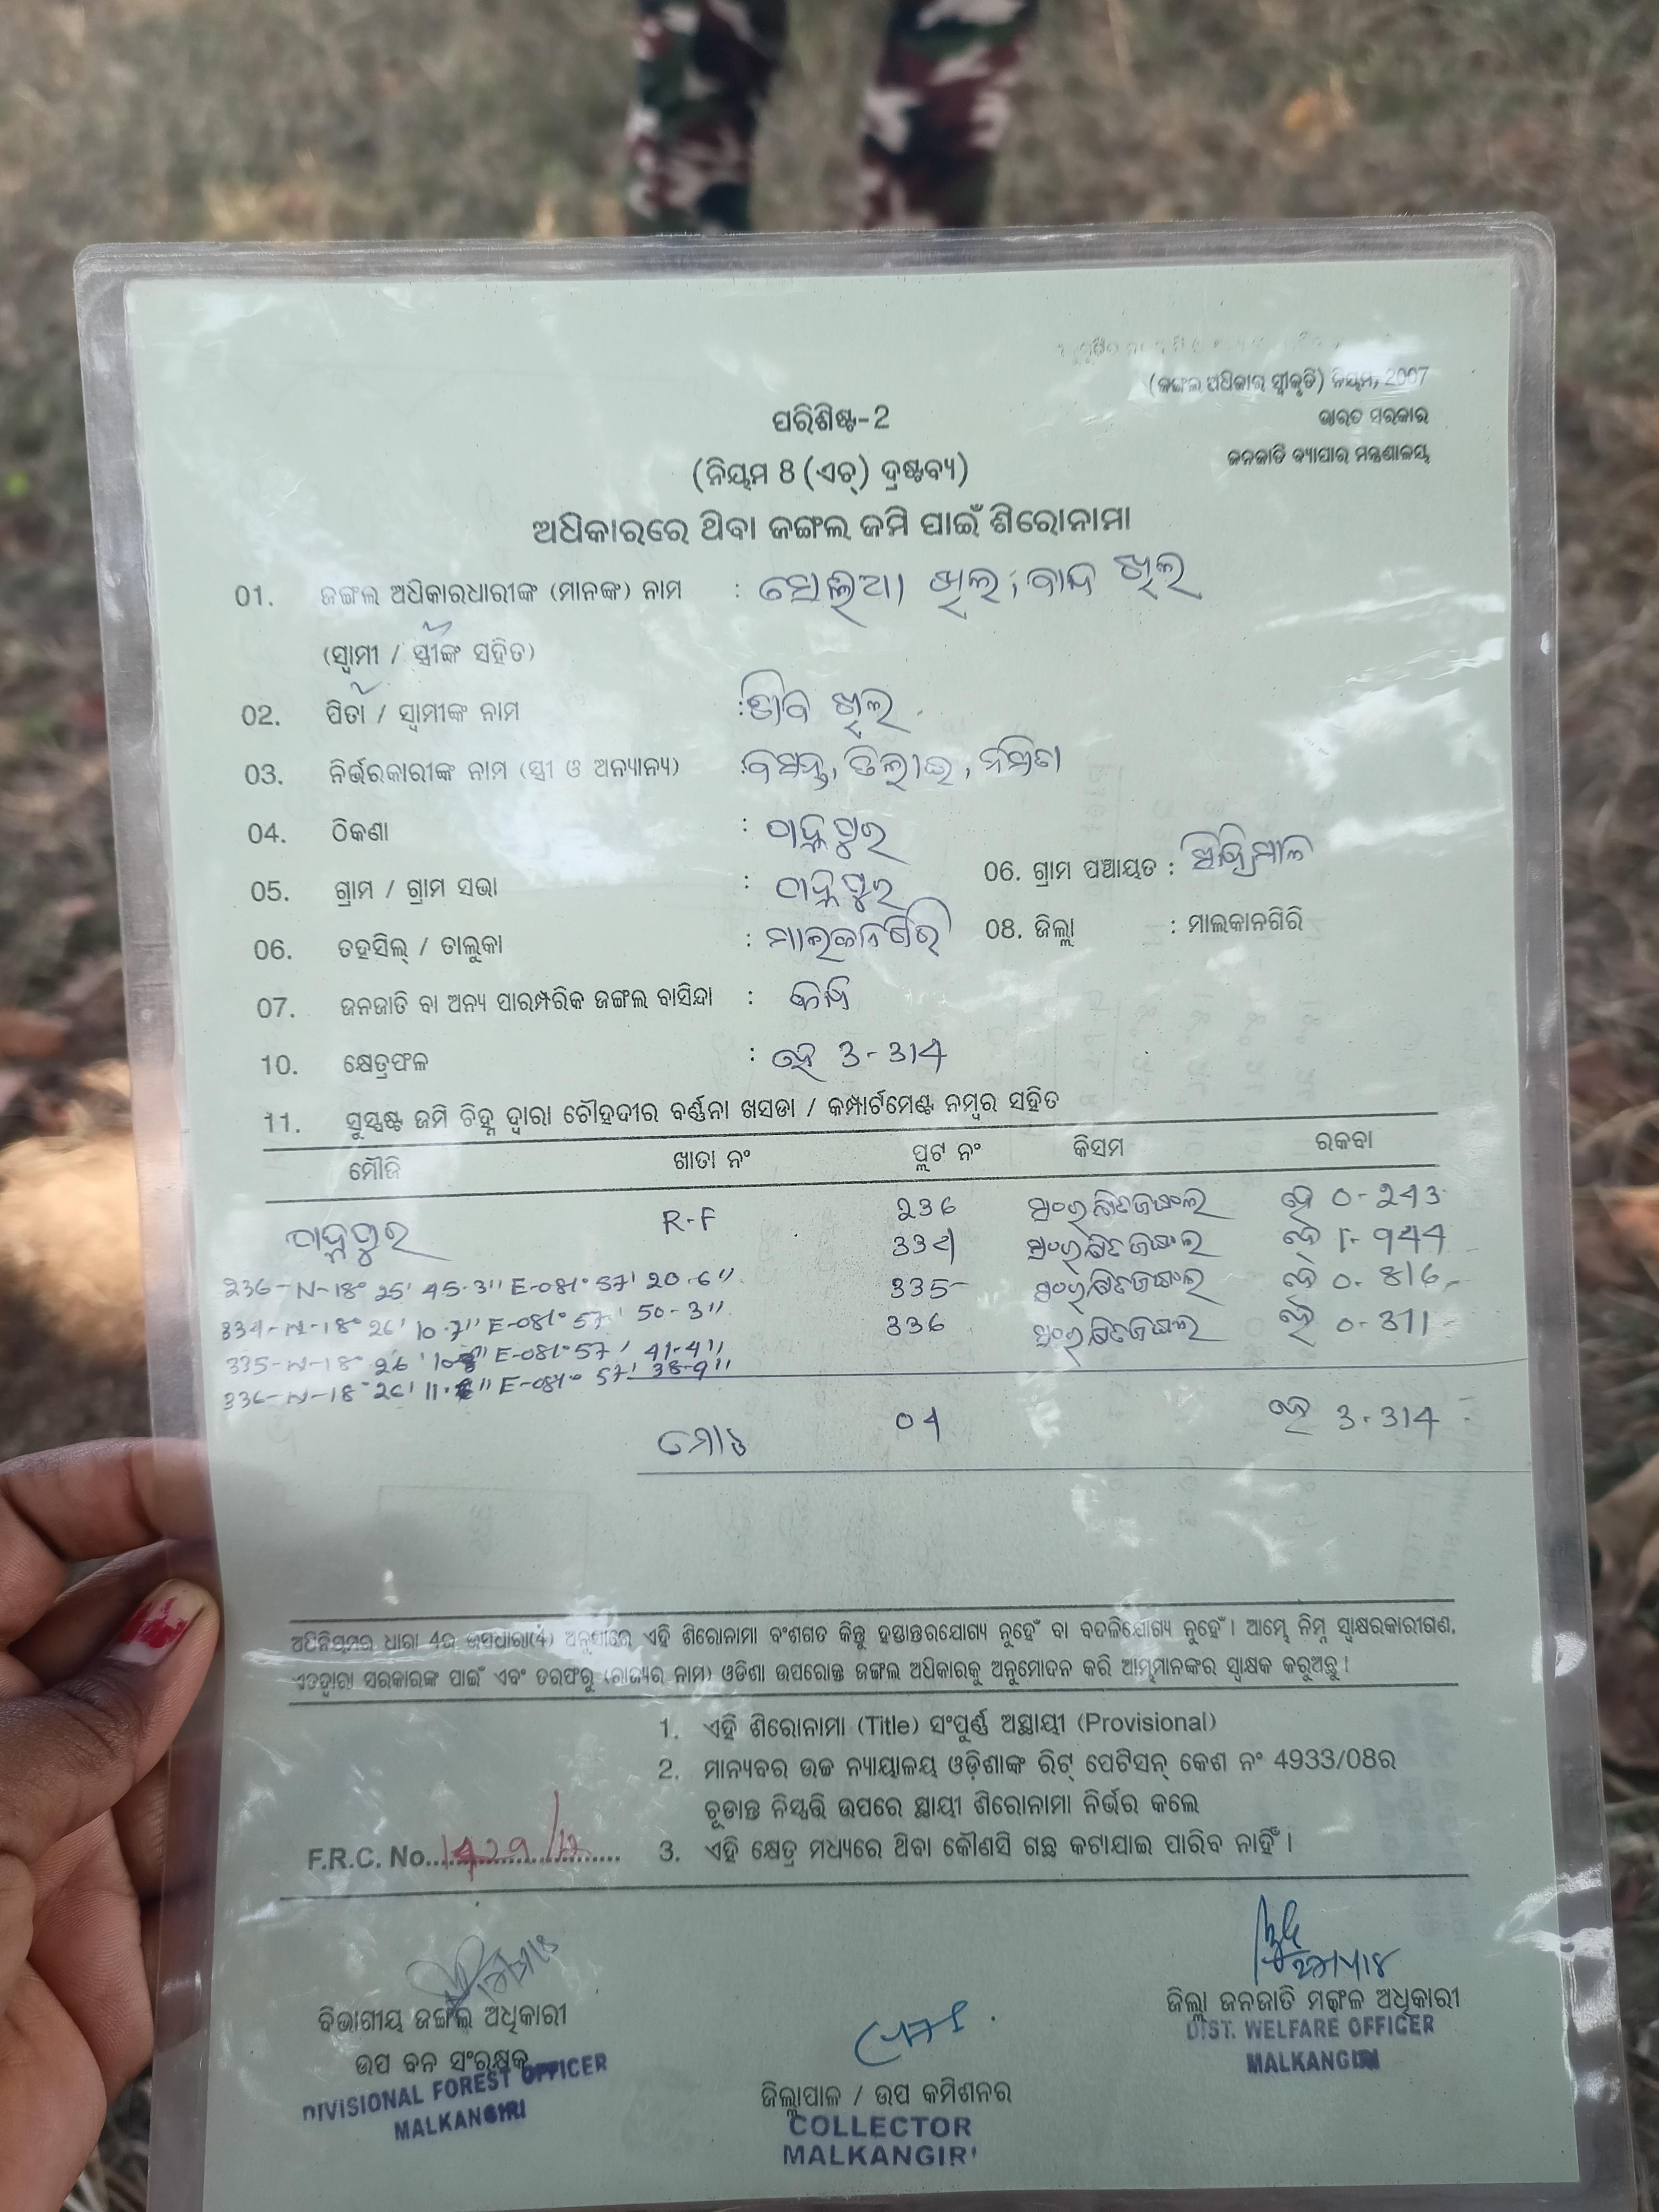 (ଜଙ୍ଗଲ ଅଧିକାର ସ୍ୱୀକୃତି) ନିୟମ, 2007
ଭାରତ ସରକାର
ଜନଜାତି ବ୍ୟାପାର ମନ୍ତ୍ରଣାଳୟ
ପରିଶିଷ୍ଟ-2
(ନିୟମ 8 (ଏଚ୍) ଦ୍ରଷ୍ଟବ୍ୟ)
ଅଧିକାରରେ ଥିବା ଜଙ୍ଗଲ ଜମି ପାଇଁ ଶିରୋନାମା
01. ଜଙ୍ଗଲ ଅଧିକାରଧାରୀଙ୍କ (ମାନଙ୍କ) ନାମ : ଖିଲ, ଖିଲ
(ସ୍ୱାମୀ / ସ୍ତ୍ରୀଙ୍କ ସହିତ)
02. ପିତା / ସ୍ୱାମୀଙ୍କ ନାମ : ଖିଲ
03. ନିର୍ଭରକାରୀଙ୍କ ନାମ (ସ୍ତ୍ରୀ ଓ ଅନ୍ୟାନ୍ୟ) :
04. ଠିକଣା :
05. ଗ୍ରାମ / ଗ୍ରାମ ସଭା : 06. ଗ୍ରାମ ପଞ୍ଚାୟତ :
06. ତହସିଲ୍ / ତାଲୁକା : ମାଲକାନଗିରି 08. ଜିଲ୍ଲା : ମାଲକାନଗିରି
07. ଜନଜାତି ବା ଅନ୍ୟ ପାରମ୍ପରିକ ଜଙ୍ଗଲ ବାସିନ୍ଦା :
10. କ୍ଷେତ୍ରଫଳ : ହେ 3-314
11. ସୁସ୍ପଷ୍ଟ ଜମି ଚିହ୍ନ ଦ୍ୱାରା ଚୌହଦୀର ବର୍ଣ୍ଣନା ଖସଡା / କମ୍ପାର୍ଟମେଣ୍ଟ ନମ୍ବର ସହିତ
ମୌଜି ଖାତା ନଂ ପ୍ଲଟ ନଂ କିସମ ରକବା
R-F 236 ସଂରକ୍ଷିତ ଜଙ୍ଗଲ ହେ 0-243
334 ସଂରକ୍ଷିତ ଜଙ୍ଗଲ ହେ 1-944
236-N-18° 25' 45.3" E-081° 57' 20.6" 335 ସଂରକ୍ଷିତ ଜଙ୍ଗଲ ହେ 0-816
334-N-18° 26' 10.7" E-081° 57' 50-3" 336 ସଂରକ୍ଷିତ ଜଙ୍ଗଲ ହେ 0-311
335-N-18° 26' E-081° 57' 41-4"
336-N-18° 26' E-081° 57' 38-9"
ମୋଟ 04 ହେ 3-314
ଅଧିନିୟମର ଧାରା 4ର ଉପଧାରା(4) ଅନୁସାରେ ଏହି ଶିରୋନାମା ବଂଶଗତ କିନ୍ତୁ ହସ୍ତାନ୍ତରଯୋଗ୍ୟ ନୁହେଁ ବା ବଦଳିଯୋଗ୍ୟ ନୁହେଁ। ଆମ୍ଭେ ନିମ୍ନ ସ୍ୱାକ୍ଷରକାରୀଗଣ,
ଏତଦ୍ୱାରା ସରକାରଙ୍କ ପାଇଁ ଏବଂ ତରଫରୁ (ରାଜ୍ୟର ନାମ) ଓଡିଶା ଉପରୋକ୍ତ ଜଙ୍ଗଲ ଅଧିକାରକୁ ଅନୁମୋଦନ କରି ଆମ୍ଭମାନଙ୍କର ସ୍ୱାକ୍ଷକ କରୁଅଛୁ।
1. ଏହି ଶିରୋନାମା (Title) ସଂପୂର୍ଣ୍ଣ ଅସ୍ଥାୟୀ (Provisional)
2. ମାନ୍ୟବର ଉଚ୍ଚ ନ୍ୟାୟାଳୟ ଓଡ଼ିଶାଙ୍କ ରିଟ୍ ପେଟିସନ୍ କେଶ ନଂ 4933/08ର
ଚୂଡାନ୍ତ ନିସ୍ପତ୍ତି ଉପରେ ସ୍ଥାୟୀ ଶିରୋନାମା ନିର୍ଭର କଲେ
F.R.C. No. 3. ଏହି କ୍ଷେତ୍ର ମଧ୍ୟରେ ଥିବା କୌଣସି ଗଛ କଟାଯାଇ ପାରିବ ନାହିଁ।
ବିଭାଗୀୟ ଜଙ୍ଗଲ ଅଧିକାରୀ
ଉପ ବନ ସଂରକ୍ଷକ
DIVISIONAL FOREST OFFICER
MALKANGIRI
ଜିଲ୍ଲାପାଳ / ଉପ କମିଶନର
COLLECTOR
MALKANGIRI
ଜିଲ୍ଲା ଜନଜାତି ମଙ୍ଗଳ ଅଧିକାରୀ
DIST. WELFARE OFFICER
MALKANGIRI